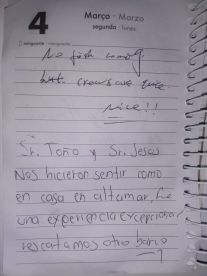 4
Março - Marzo
segunda - lunes
No fish coming
but crews are
nice!!
Sr. Toño y Sr. Jesus
Nos hicieron sentir como
en casa en altamar, fue
una experiencia excepcional
rescatamos otro barco